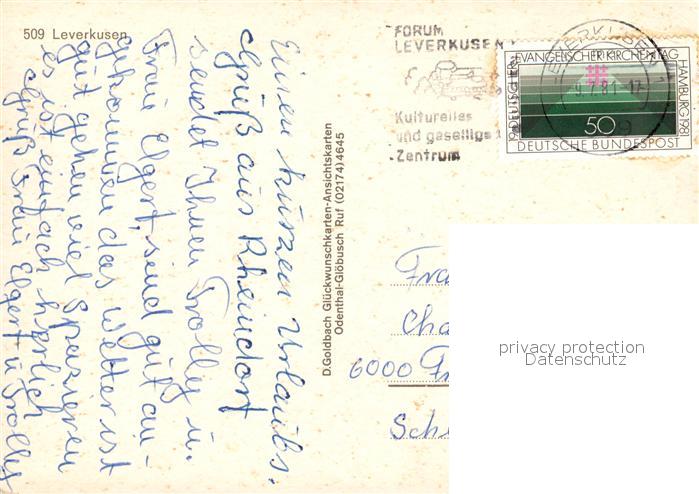 509 Leverkusen
FORUM
LEVERKUSEN
Kulturelles
und geselliges
Zentrum
19. DEUTSCHER EVANGELISCHER KIRCHENTAG HAMBURG 1981
50
DEUTSCHE BUNDESPOST
LEVERKUSEN
9.7.81-17
Einen kurzen Urlaubs-
gruß aus Rheindorf
sendet Ihnen Trolly u.
Frau Elgert, sind gut an-
gekommen das Wetter ist
gut gehen viel Spazieren
es ist einfach herrlich
Gruß Frau Elgert u Trolly
D.Goldbach Glückwunschkarten-Ansichtskarten
Odenthal-Glöbusch Ruf (02174)4645
Fra
Cha
6000 Fr
Sch
privacy protection
Datenschutz